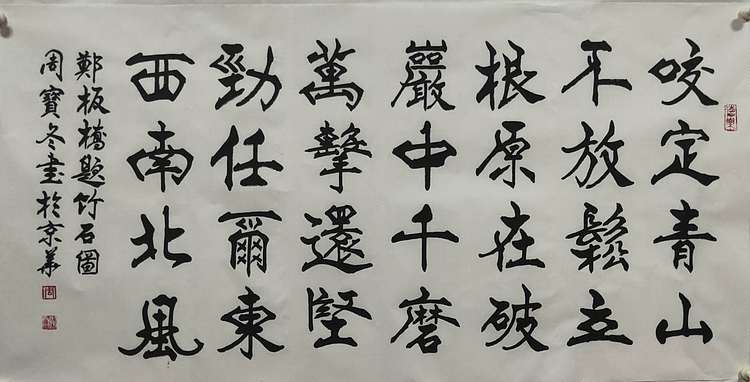 咬定青山
不放鬆立
根原在破
巖中千磨
萬擊還堅
勁任爾東
西南北風
鄭板橋題竹石圖
周寶冬書於京華